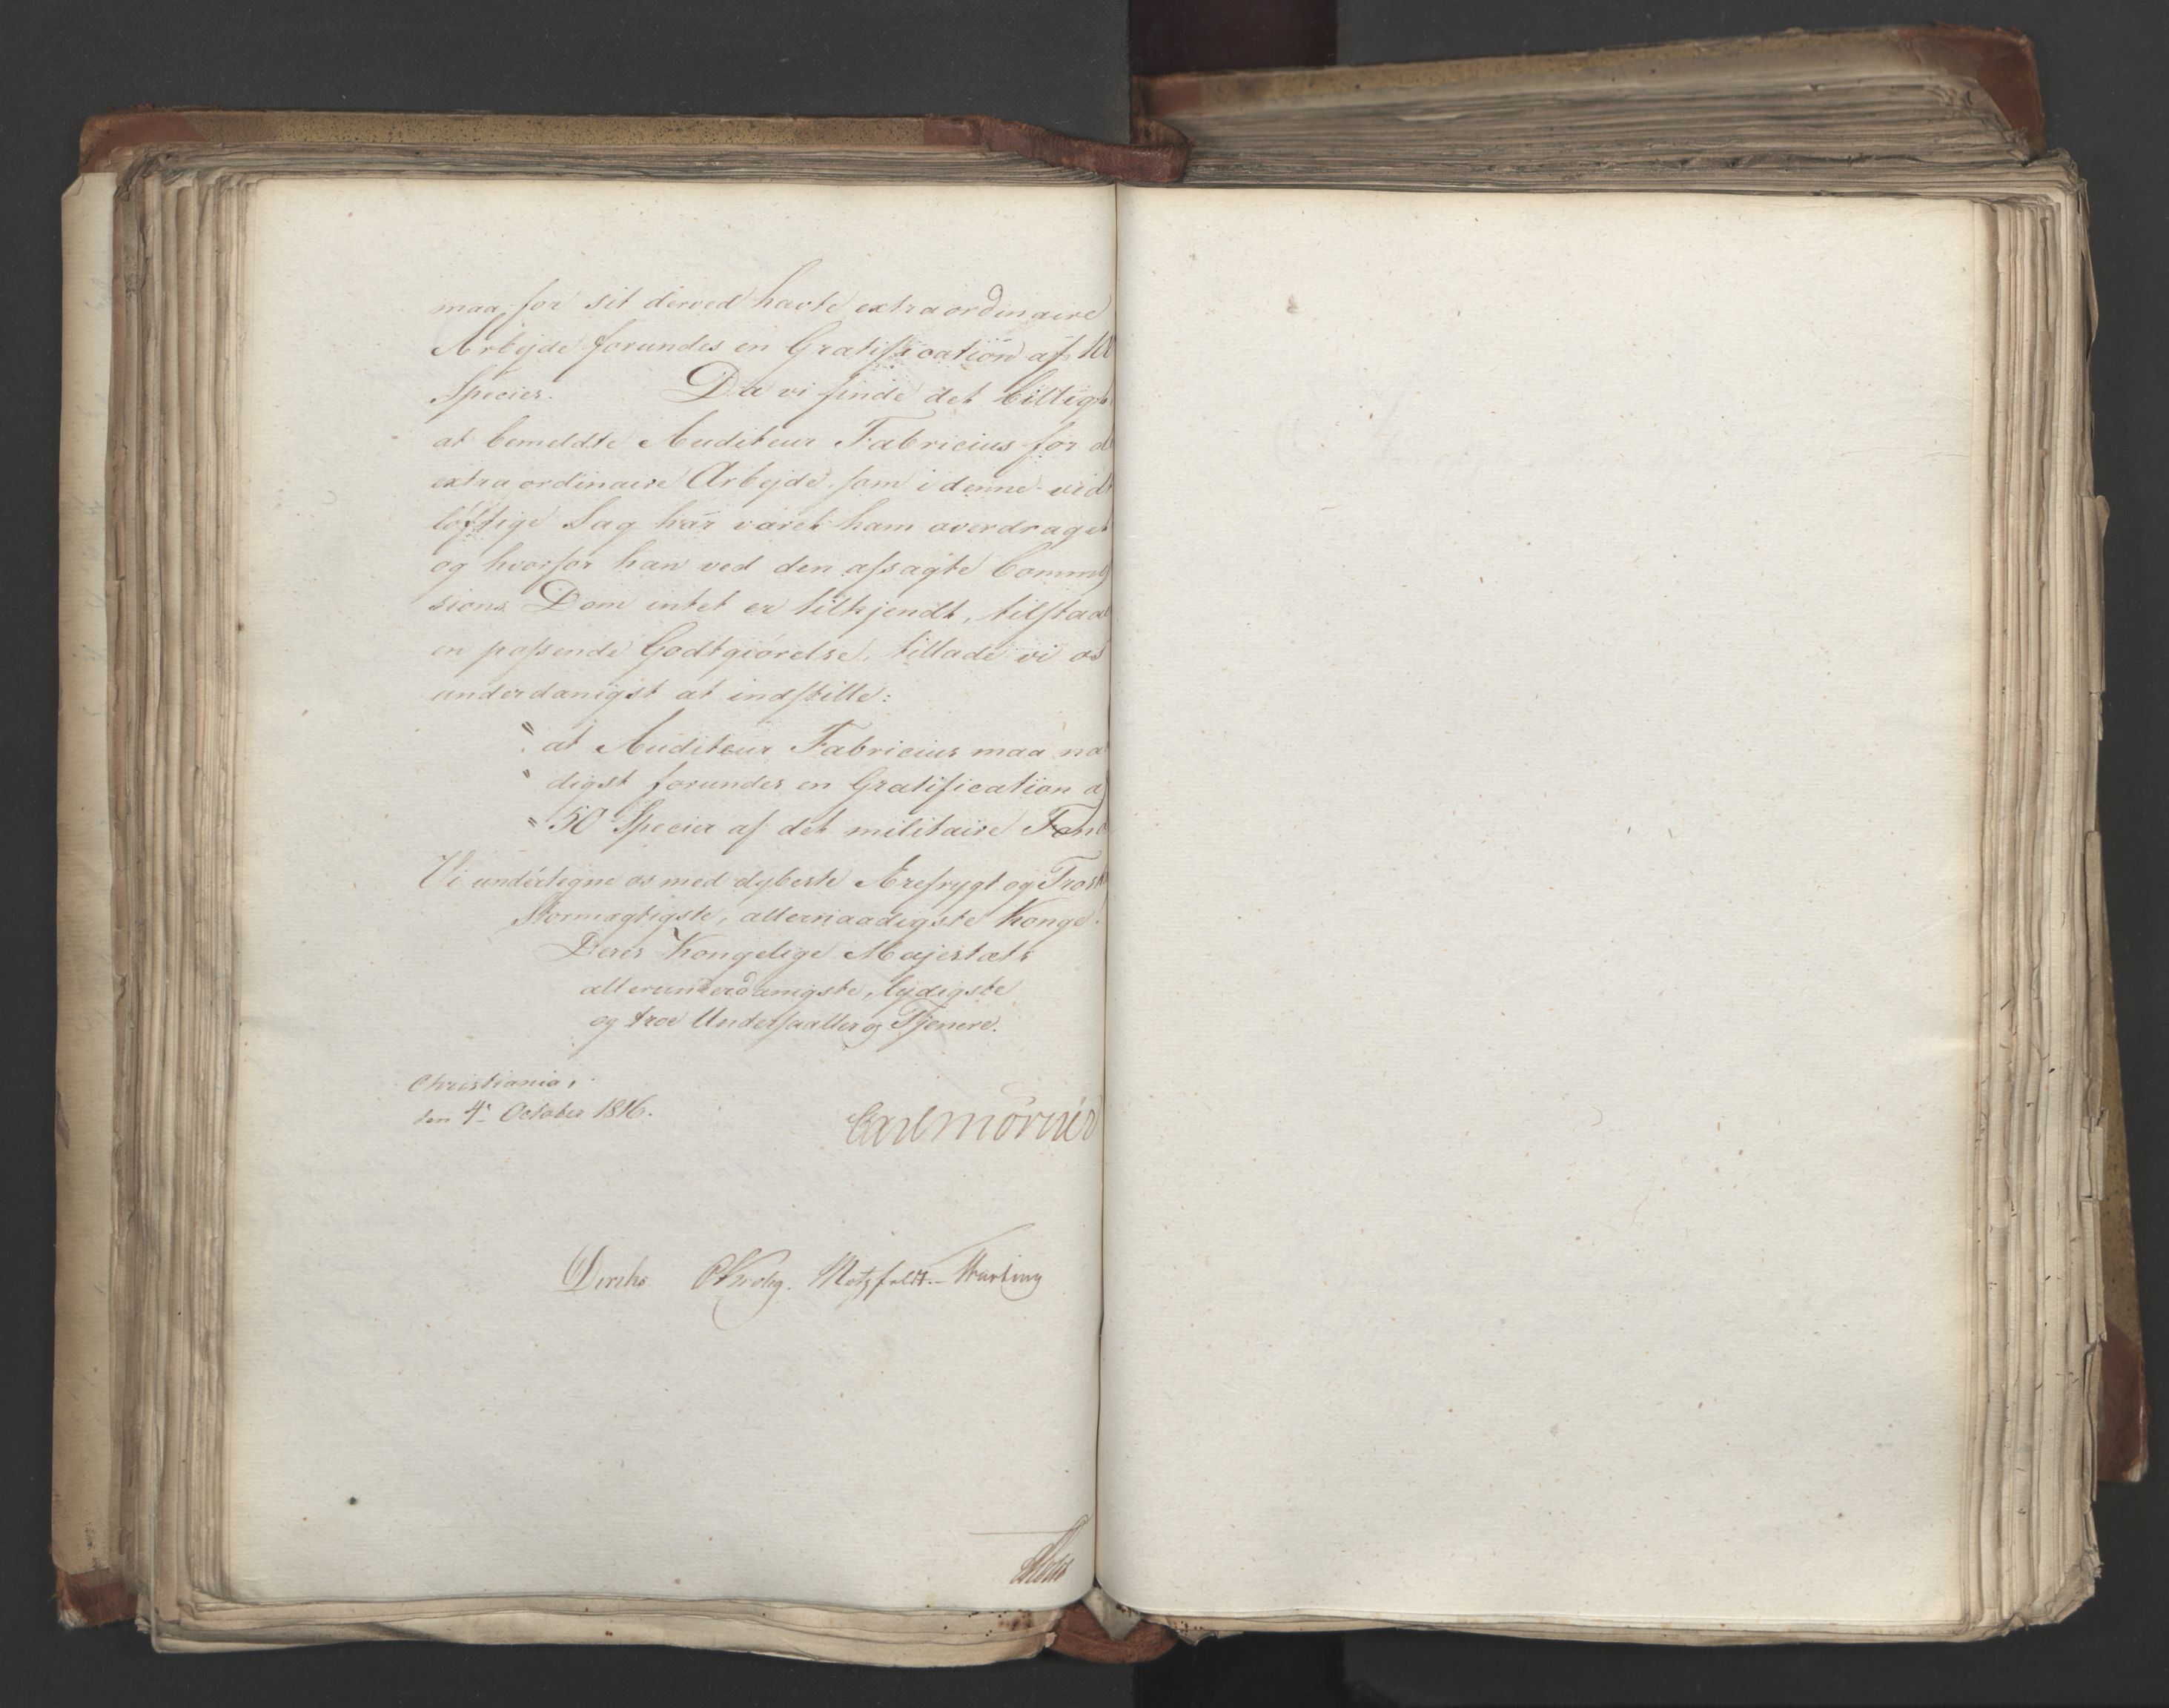 maa for sit derved havte extraordinaire
Arbejde forundes en Gratification af 100
Species. Da vi finde det billigt
at bemeldte Auditeur Fabricius for d
extraordinaire Arbejde som i denne vidt
løftige Sag har været ham overdraget
og hvorfor han ved den afsagte Commis
sions Dom intet er tilkjendt, tilstaae
en passende Godtgiørelse, tillade vi os
underdanigst at indstille:
" at Auditeur Fabricius maa naa
" digst forundes en Gratification af
" 50 Species af det militaire Fond
Vi undertegne os med dybeste Ærefrygt og Trosk
Stormægtigste, allernaadigste Konge.
Deres Kongelige Majestæts
allerunderdanigste, lydigste
og troe Undersaatter og Tjenere.
Christiania,
den 4de October 1816.
Carl Mörner
Diriks OKrohg. Motzfeldt.